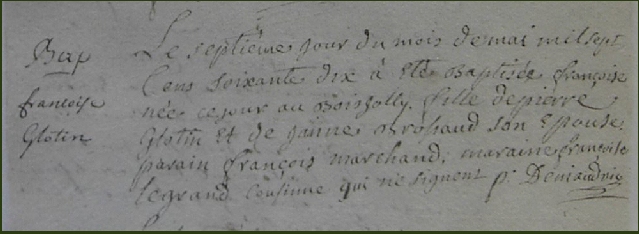 Bap
francoise
Glotin
Le septieme jour du mois de mai mil sept
Cens soixante dix à été Baptisée françoise
née ce jour au Boisjolly. fille de pierre
Glotin Et de janne Brossaud son Epouse.
parain françois marchand; maraine françoise
legrand Cousinne qui ne signent p.